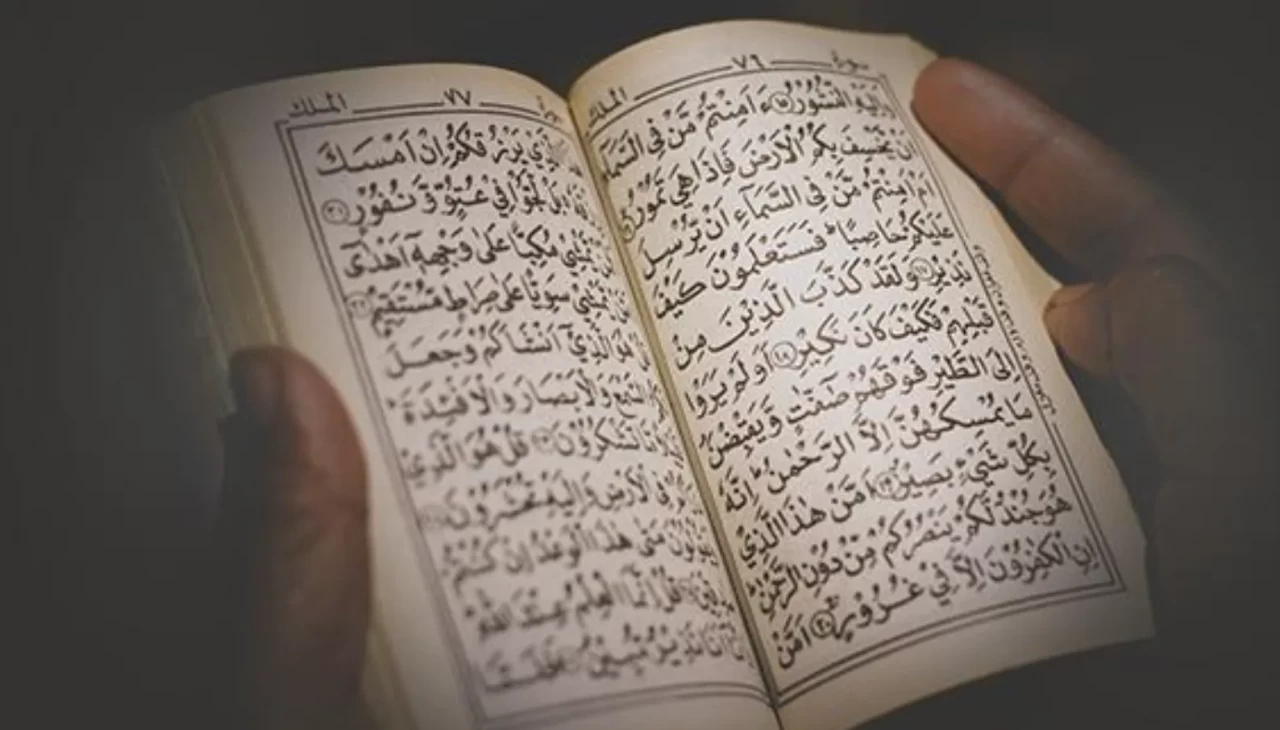 سورة ٧٦ الملك
وَاِلَيْهِ النُّشُوْرُ ۝١٥ ءَاَمِنْتُمْ مَّنْ فِى السَّمَآءِ
اَنْ يَّخْسِفَ بِكُمُ الْاَرْضَ فَاِذَا هِيَ تَمُوْرُ
اَمْ اَمِنْتُمْ مَّنْ فِى السَّمَآءِ اَنْ يُّرْسِلَ
عَلَيْكُمْ حَاصِبًا ؕ فَسَتَعْلَمُوْنَ كَيْفَ
نَذِيْرِ ۝١٧ وَلَقَدْ كَذَّبَ الَّذِيْنَ مِنْ
قَبْلِهِمْ فَكَيْفَ كَانَ نَكِيْرِ ۝١٨ اَوَلَمْ يَرَوْا
اِلَى الطَّيْرِ فَوْقَهُمْ صٰٓفّٰتٍ وَّيَقْبِضْنَ
مَا يُمْسِكُهُنَّ اِلَّا الرَّحْمٰنُ ؕ اِنَّهٗ
بِكُلِّ شَيْءٍ بَصِيْرٌ ۝١٩ اَمَّنْ هٰذَا الَّذِيْ
هُوَ جُنْدٌ لَّكُمْ يَنْصُرُكُمْ مِّنْ دُوْنِ الرَّحْمٰنِ ؕ
اِنِ الْكٰفِرُوْنَ اِلَّا فِيْ غُرُوْرٍ ۝٢٠ اَمَّنْ
٧٧ الملك
الَّذِيْ يَرْزُقُكُمْ اِنْ اَمْسَكَ
بَلْ لَّجُّوْا فِيْ عُتُوٍّ وَّنُفُوْرٍ ۝٢١
يَّمْشِيْ مُكِبًّا عَلٰى وَجْهِهٖٓ اَهْدٰٓى
يَّمْشِيْ سَوِيًّا عَلٰى صِرَاطٍ مُّسْتَقِيْمٍ ۝٢٢
هُوَ الَّذِيْٓ اَنْشَاَكُمْ وَجَعَلَ
السَّمْعَ وَالْاَبْصَارَ وَالْاَفْـِٕدَةَ ؕ
مَّا تَشْكُرُوْنَ ۝٢٣ قُلْ هُوَ الَّذِيْ
فِى الْاَرْضِ وَاِلَيْهِ تُحْشَرُوْنَ ۝٢٤
يَقُوْلُوْنَ مَتٰى هٰذَا الْوَعْدُ اِنْ كُنْتُمْ
قُلْ اِنَّمَا الْعِلْمُ عِنْدَ اللّٰهِ
اَنَا نَذِيْرٌ مُّبِيْنٌ ۝٢٦ فَلَمَّا